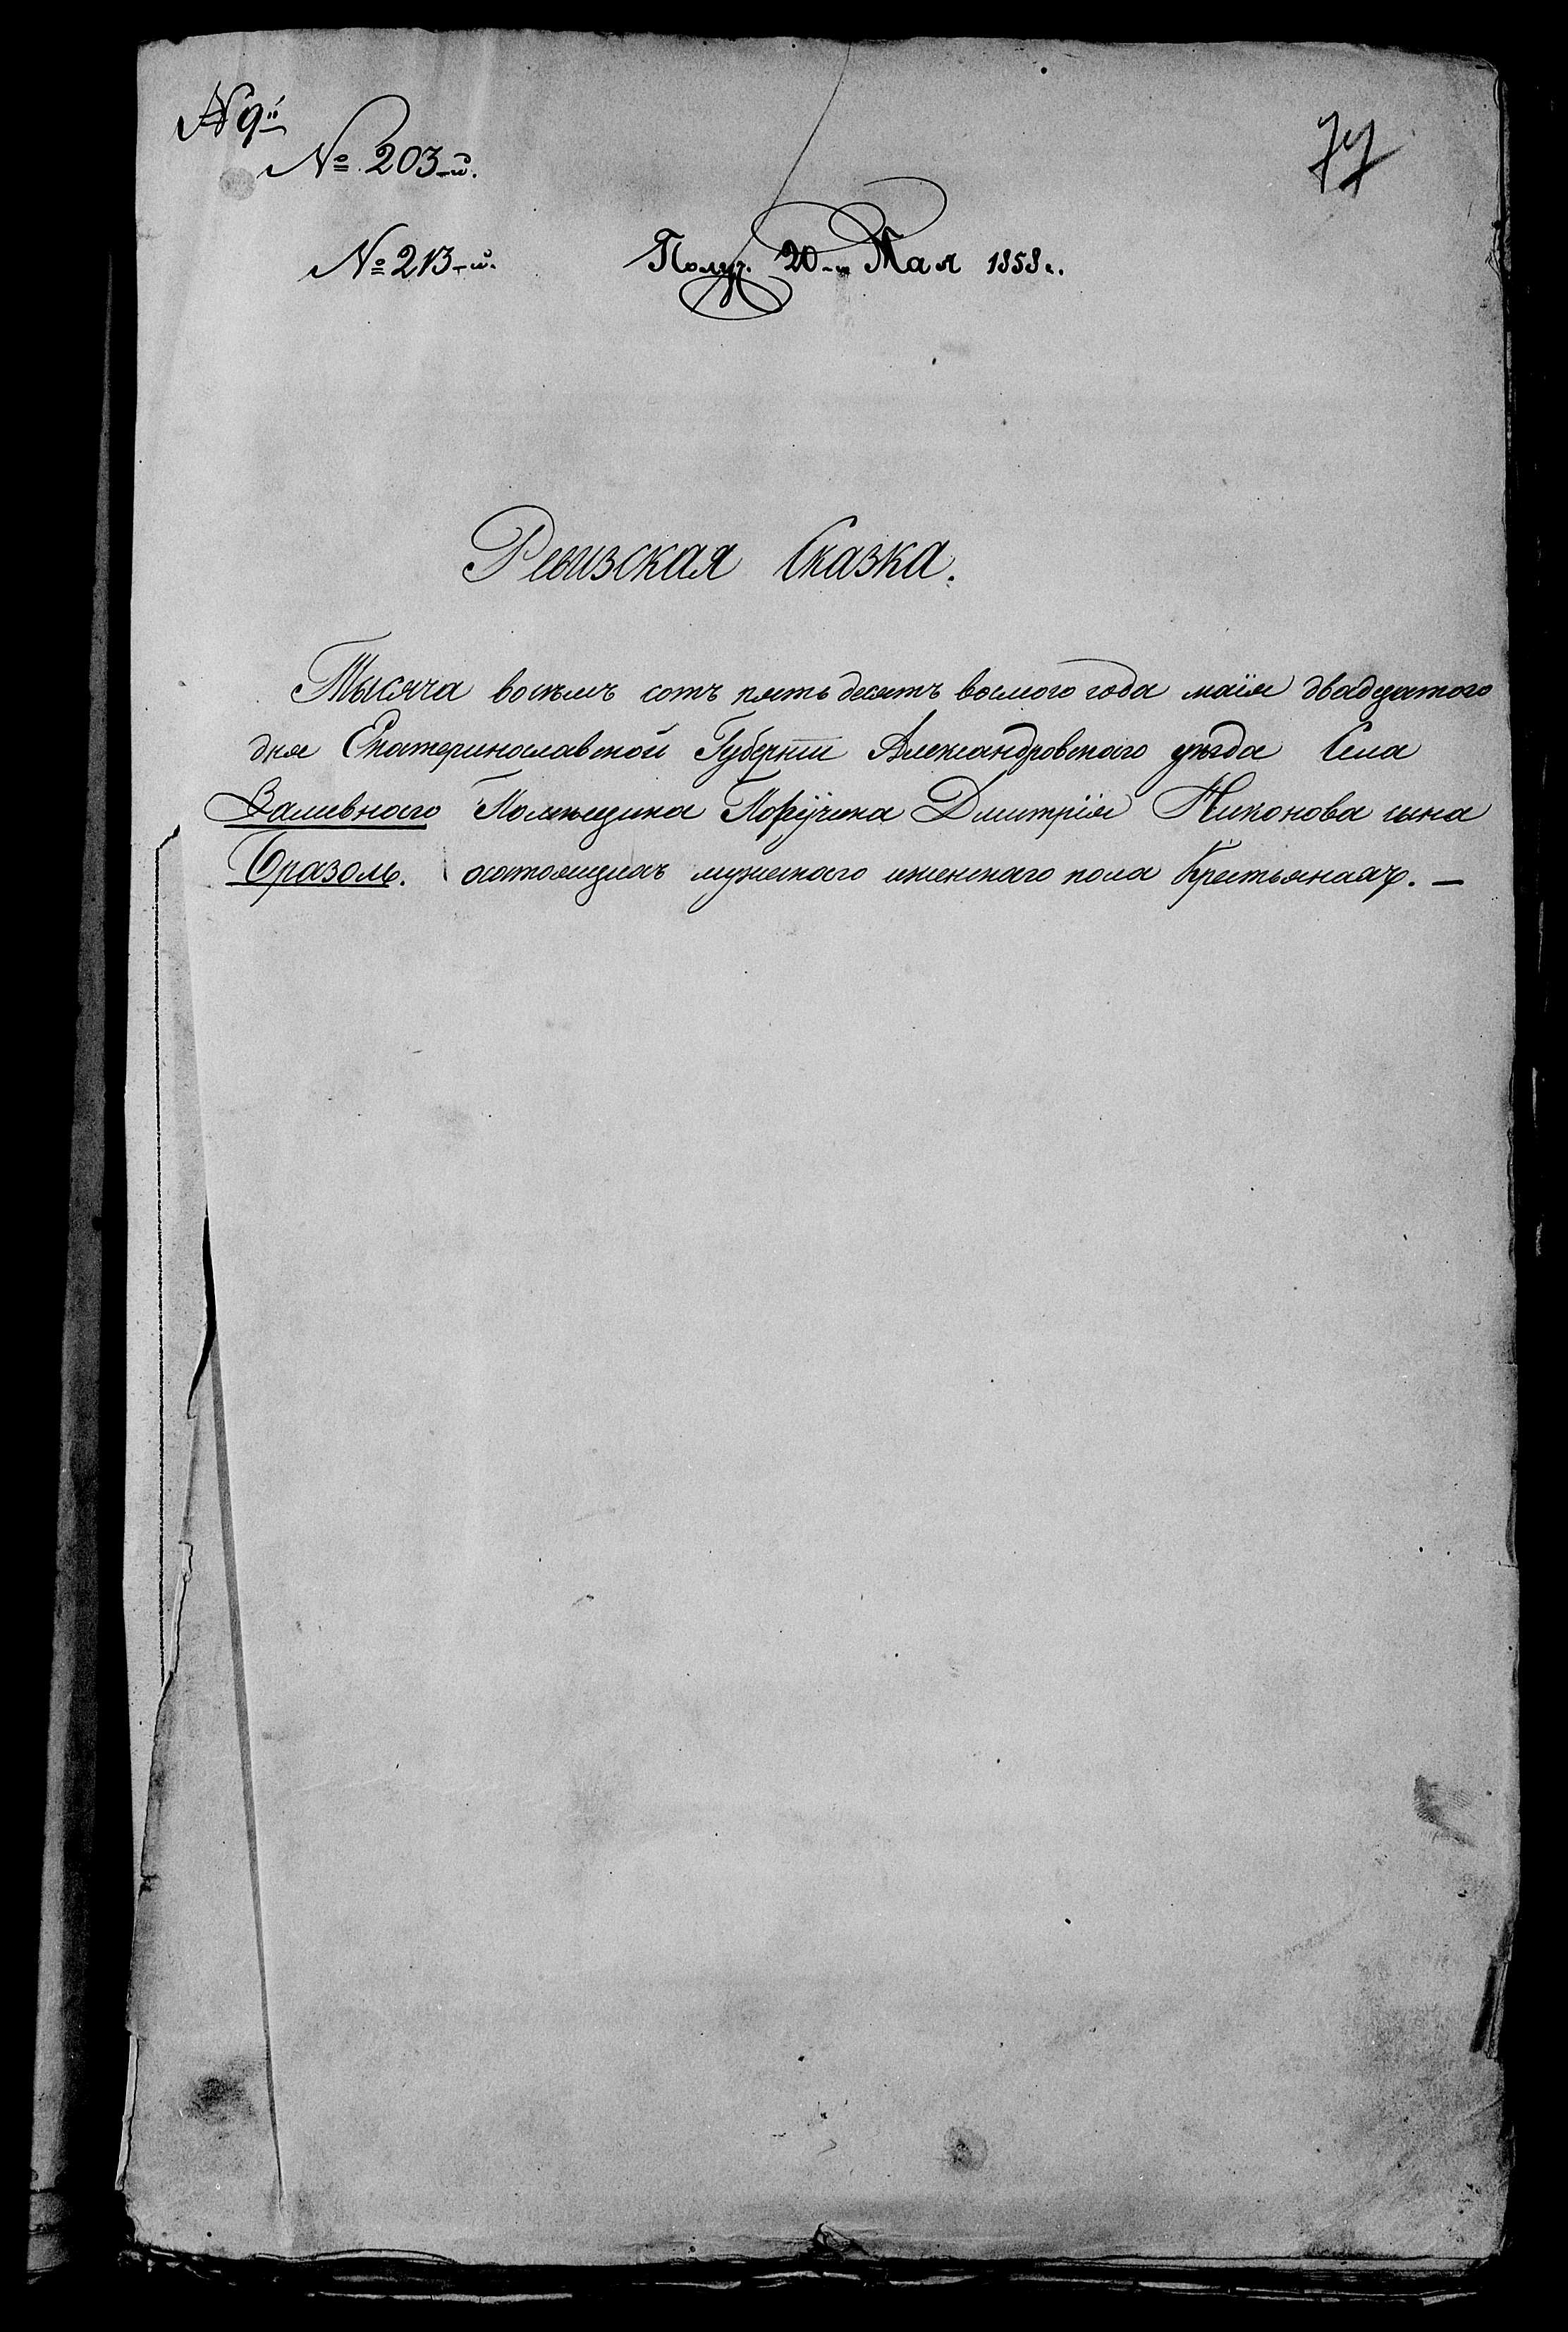 № 9й
№ 203-й.
77
№ 213-й.
Получ. 20-го Мая 1858 г.
Ревизская Сказка.
Тысяча восемь сотъ пять десятъ восмого года маія двадцатого
дня Екатеринославской Губерніи Александровскаго уѣзда Села
Заливнаго Помѣщика Поручика Дмитрія Никонова сына
Бразоль. осостоящихъ мужескаго иженскаго пола Крестьянахъ. —